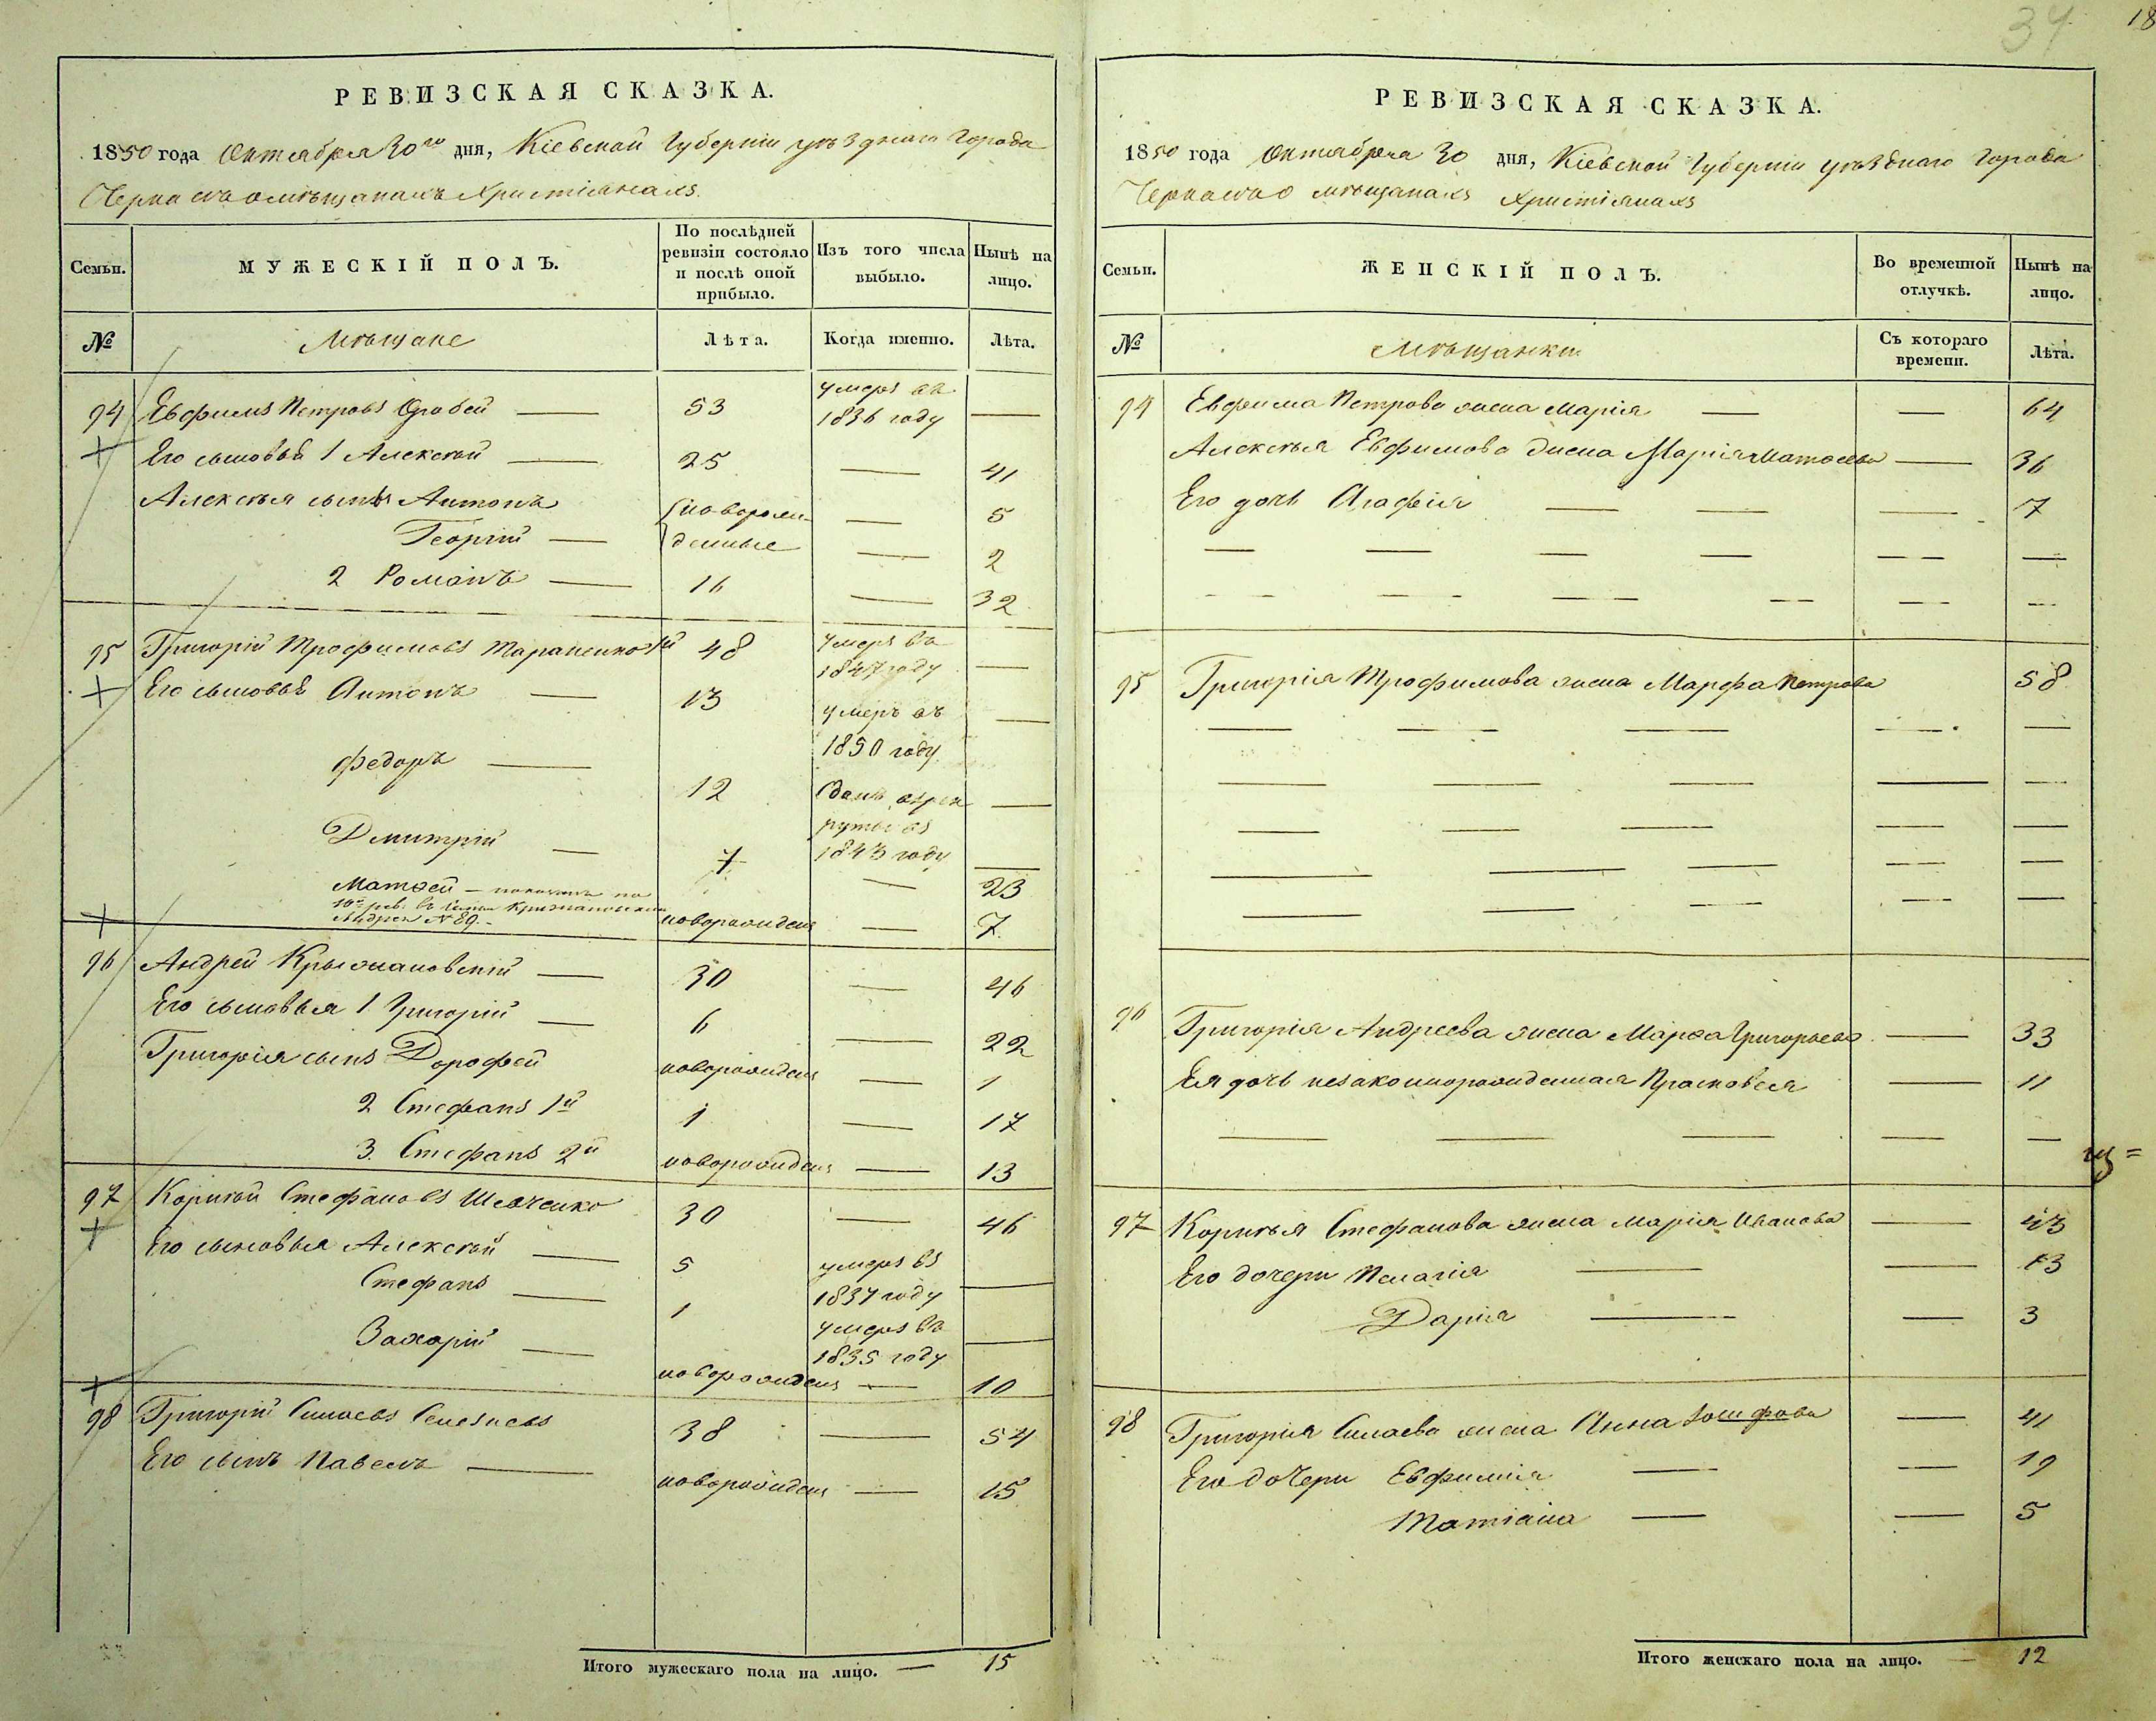 34 18
РЕВИЗСКАЯ СКАЗКА.
1850 года Октября 30го дня, Кіевской Губерніи уѣзднаго города
Черкасъ о мѣщанахъ Христіянахъ
Семьи.
МУЖЕСКІЙ ПОЛЪ.
По послѣдней ревизіи состояло и послѣ оной прибыло.
Изъ того числа выбыло.
Нынѣ на лицо.
№
Мѣщане
Лѣта.
Когда именно.
Лѣта.
94 Евфимъ Петровъ 53 умеръ въ 1836 году —
Его сыновья 1 Алексѣй — 25 — 41
Алексѣя сынъ Антонъ новорож- — 5
Георгій — денные — 2
2 Романъ — 16 — 32
95 Григорій Трофимовъ Тараненко 1й 48 умеръ въ 1847 году —
Его сыновья Антонъ — 13 умеръ въ 1850 году —
Федоръ — 12 Сданъ въ рекруты въ 1843 году —
Дмитрій — 7 — 23
Матѳей — показанъ по
10й рев. въ семьи Крыжановскаго
Андрея № 89. — новорожденъ — 7
96 Андрей Крыжановскій — 30 — 46
Его сыновья 1 Григорій — 6 — 22
Григорія сынъ Дорофей новорожденъ — 1
2 Стефанъ 1й 1 — 17
3. Стефанъ 2й новорожденъ — 13
97 Корнѣй Стефановъ Шевченко 30 — 46
Его сыновья Алексѣй — 5 умеръ въ 1837 году —
Стефанъ — 1 умеръ въ 1835 году —
Захарій — новорожденъ — 10
98 Григорій Силаевъ Селезневъ 38 — 54
Его сынъ Павелъ — новорожденъ — 15
Итого мужескаго пола на лицо. — 15
РЕВИЗСКАЯ СКАЗКА.
1850 года Октября 30 дня, Кіевской Губерніи уѣзднаго города
Черкасъ о мѣщанахъ Христіянахъ
Семьи.
ЖЕНСКІЙ ПОЛЪ.
Во временной отлучкѣ.
Нынѣ на лицо.
№
Мѣщанки
Съ котораго времени.
Лѣта.
94 Евфима Петрова жена Марія — — 64
Алексѣя Евфимова жена Марія Матвеева — 36
Его дочь Агафія — — — 7
95 Григорія Трофимова жена Марфа Петрова 58
96 Григорія Андреева жена Марѳа Григорьева — 33
Ея дочь незаконнорожденная Прасковея — 11
97 Корнѣя Стефанова жена Марія Иванова — 43
Его дочери Пелагія — — 13
Дарія — — 3
98 Григорія Силаева жена Анна Іосифова — 41
Его дочери Евфимія — — 19
Татіана — — 5
Итого женскаго пола на лицо. — 12